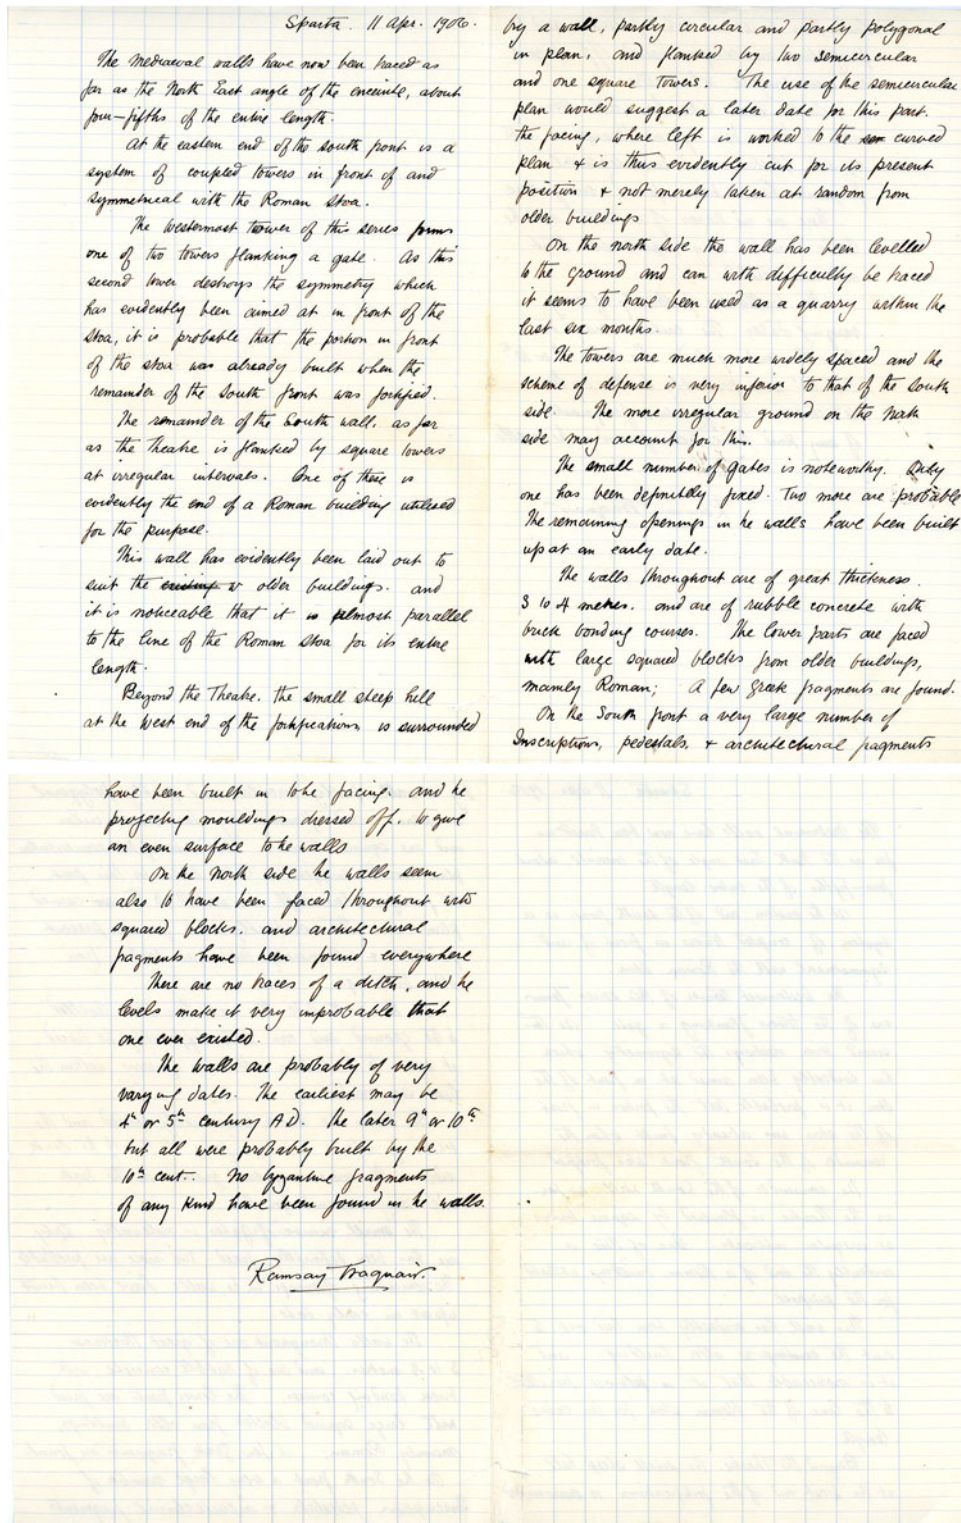 Sparta. 11 Apr. 1906.
The Mediaeval walls have now been traced as
far as the North East angle of the enceinte, about
four-fifths of the entire length.
At the eastern end of the south front is a
system of coupled towers in front of and
symmetrical with the Roman Stoa.
The Westernmost tower of this series forms
one of two towers flanking a gate. As this
second tower destroys the symmetry which
has evidently been aimed at in front of the
Stoa, it is probable that the portion in front
of the stoa was already built when the
remainder of the south front was fortified.
The remainder of the South wall, as far
as the Theatre is flanked by square towers
at irregular intervals. One of these is
evidently the end of a Roman building utilised
for the purpose.
This wall has evidently been laid out to
suit the existing w older buildings. and
it is noticeable that it is almost parallel
to the line of the Roman Stoa for its entire
length.
Beyond the Theatre. the small steep hill
at the West end of the fortifications is surrounded
by a wall, partly circular and partly polygonal
in plan, and flanked by two semicircular
and one square towers. The use of the semicircular
plan would suggest a later date for this part.
the facing, where left is worked to the curved
plan + is thus evidently cut for its present
position + not merely taken at random from
older buildings
On the north side the wall has been levelled
to the ground and can with difficulty be traced
it seems to have been used as a quarry within the
last six months.
The towers are much more widely spaced and the
scheme of defense is very inferior to that of the South
side. The more irregular ground on the North
side may account for this.
The small number of gates is noteworthy. Only
one has been definitely fixed. Two more are probable
The remaining openings in he walls have been built
up at an early date.
The walls throughout are of great thickness.
3 to 4 metres. and are of rubble concrete with
brick bonding courses. The lower parts are faced
with large squared blocks from older buildings,
mainly Roman; A few Greek fragments are found.
On the South front a very large number of
Inscriptions, pedestals, + architectural fragments
have been built in to he facing. and he
projecting mouldings dressed off. to give
an even surface to he walls
On the North side he walls seem
also to have been faced throughout with
squared blocks. and architectural
fragments have been found everywhere
There are no traces of a ditch, and he
levels make it very improbable that
one ever existed.
The walls are probably of very
varying dates. The earliest may be
4th or 5th century AD. the later 9th or 10th
but all were probably built by the
10th cent.. No byzantine fragments
of any kind have been found in he walls.
Ramsay Traquair.